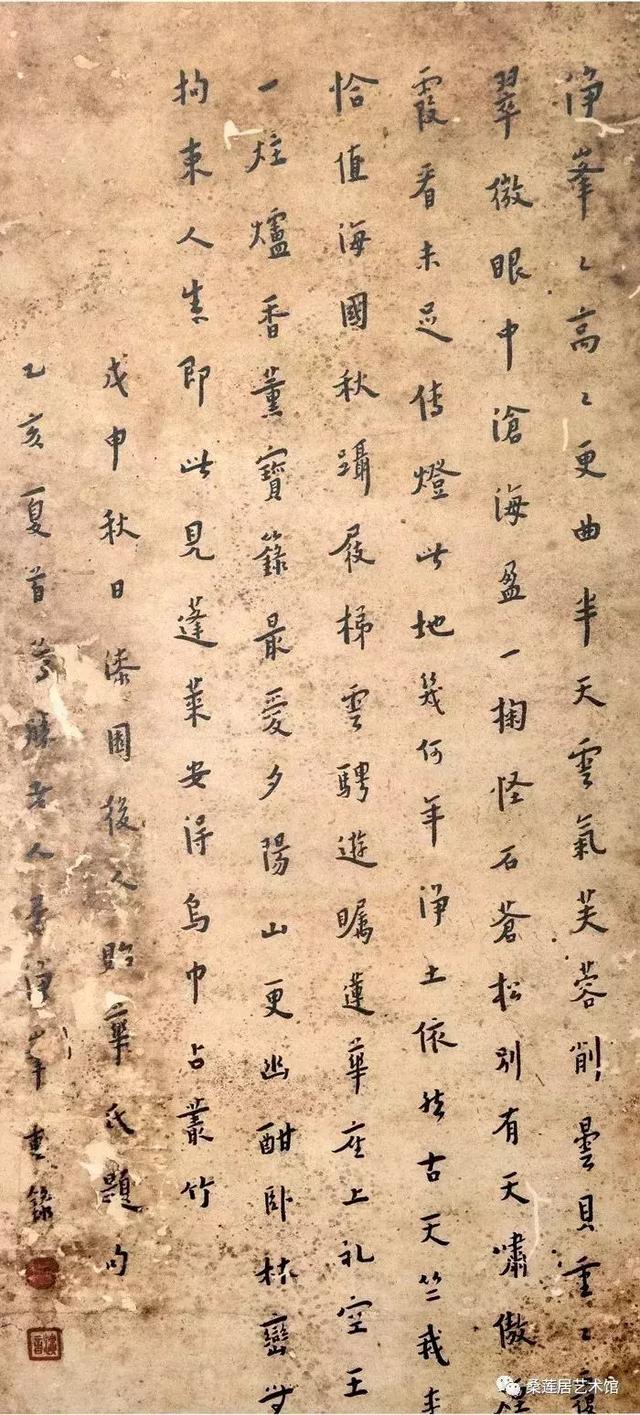 净峯々高々更曲半天雲氣芙蓉削曇貝重々復
翠微眼中滄海盈一掬怪石蒼松別有天嘯傲煙
霞看未足傳燈此地幾何年淨土依然古天竺我来
恰值海國秋躡屐梯雲騁遊矚蓮華座上礼空王
一炷爐香薰寶籙最愛夕陽山更幽酣卧林巒豈
拘束人生即此見蓬萊安得烏巾占叢竹
戊申秋日漆園後人貽華氏題句
乙亥夏首 老人 淨峯重錄
桑莲居艺术馆